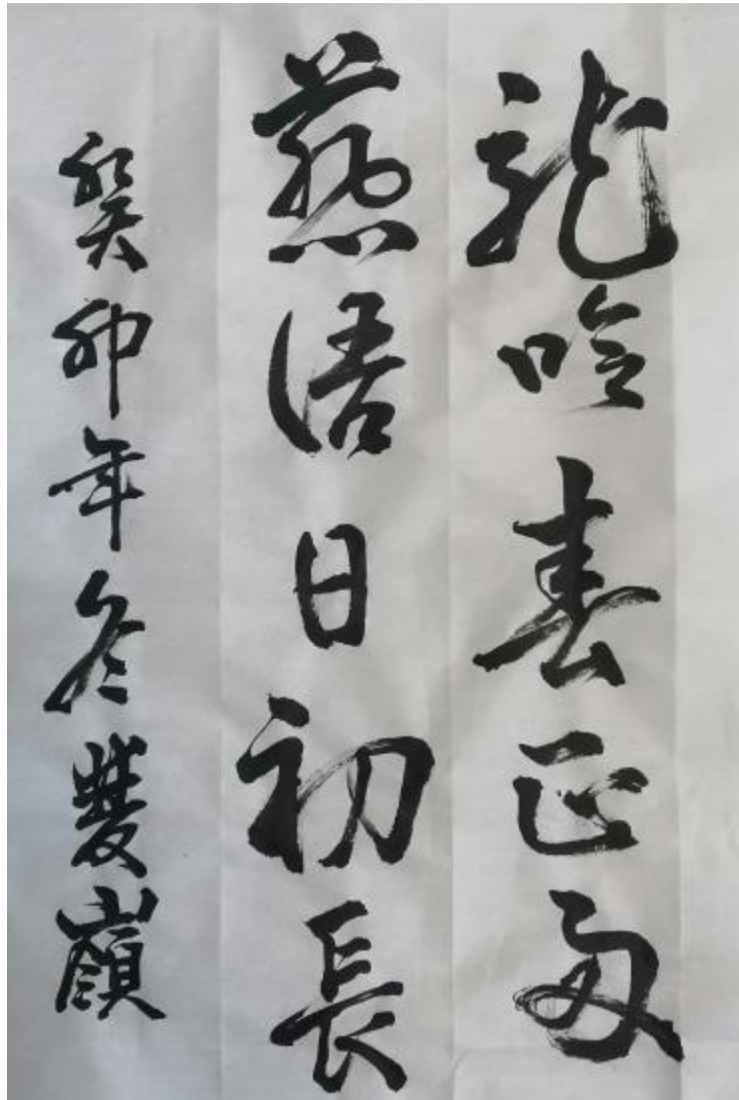 龍吟春正
燕語日初長
癸卯年冬雙嶺